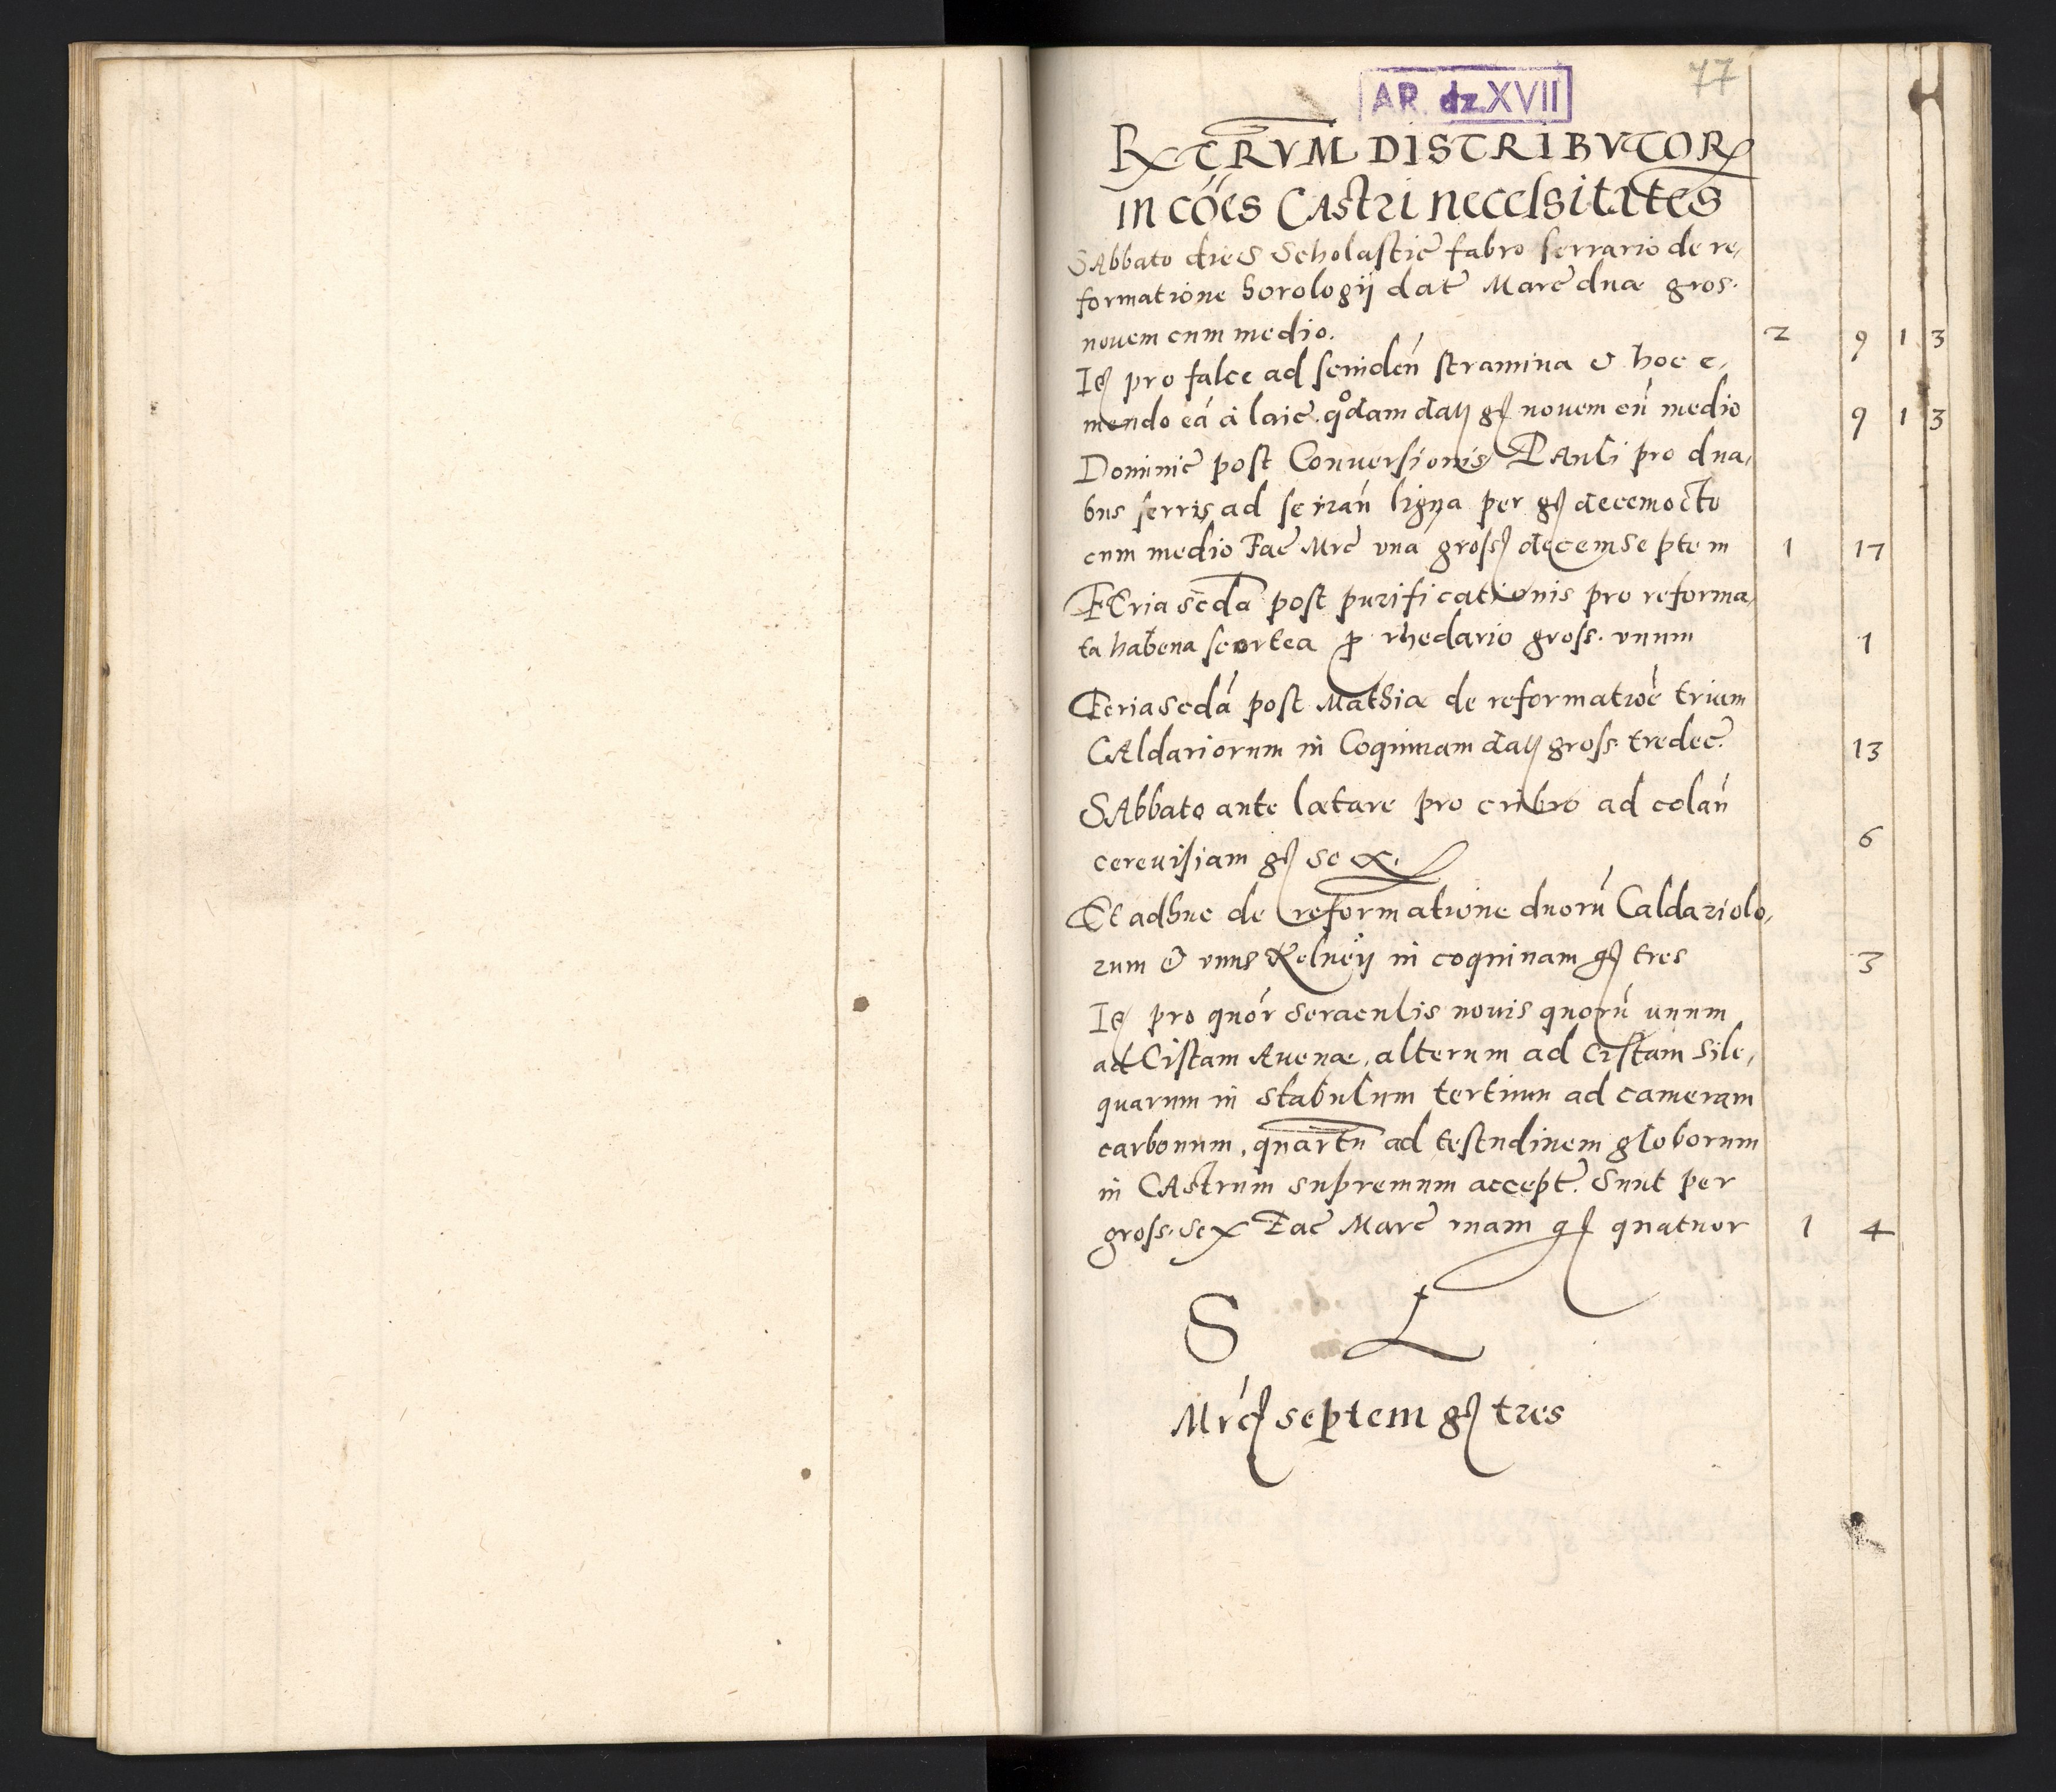 77
AR. dz.XVII
Rx ERVM DISTRIBVTOR
in cōēs Castri necessitates
Sabbato dies Scholastic fabro ferrario de re,
formatione horologij dat Marc duæ gros.
novem cum medio. 2 9 1 3
It pro falce ad scinden stramina & hoc e,
mendo eá á laic. qᵒdam daty gſ novem cú medio 9 1 3
Dominic post Conversionis Pauli pro dua,
bus serris ad seczań ligna per gſ decemocto
cum medio Fac Mrc una grossſ decemseptem 1 17
Feria scda post purificationis pro reforma,
ta habena scortea ꝑ rhedario gross. unum 1
Feria scdá post Mathiæ de reformatioé trium
Caldariorum in Coquinam daty gross. tredec. 13
Sabbato ante lætare pro cribro ad colań
cerevisiam gſ sex. 6
Et adhuc de reformatione duorú Caldariolo,
rum & unus Kelneÿ in coquinam gſ tres 3
It pro quór seraculis novis quorú unum
ad Cistam Avenæ, alterum ad Cistam sile,
quarum in stabulum tertium ad cameram
carbonum, quartū ad testudinem globorum
in Castrum supremum accept. Sunt per
gross. sex Fac Marc unam gſ quatuor 1 4
S L
Mrć septem gſ tres